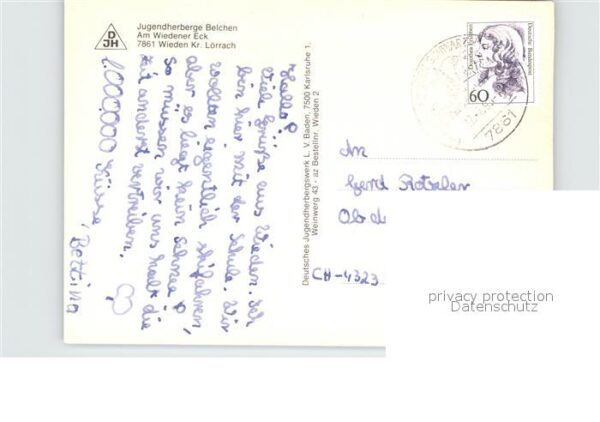 Jugendherberge Belchen
Am Wiedener Eck
7861 Wieden Kr. Lörrach
DJH
Hallo!
Viele Grüße aus Wieden. Ich
bin hier mit der Schule. Wir
wollten eigentlich skifahren,
aber es liegt kein Schnee!
So müssen wir uns halt die
Zeit anderst vertreiben.
1.000.000 Küsse,
Bettina
Deutsches Jugendherbergswerk L. V. Baden, 7500 Karlsruhe 1.
Weinweg 43 - az Bestellnr. Wieden 2
Deutsche Bundespost
60
7861
An
Gerd
Ob d
CH-4323
privacy protection
Datenschutz